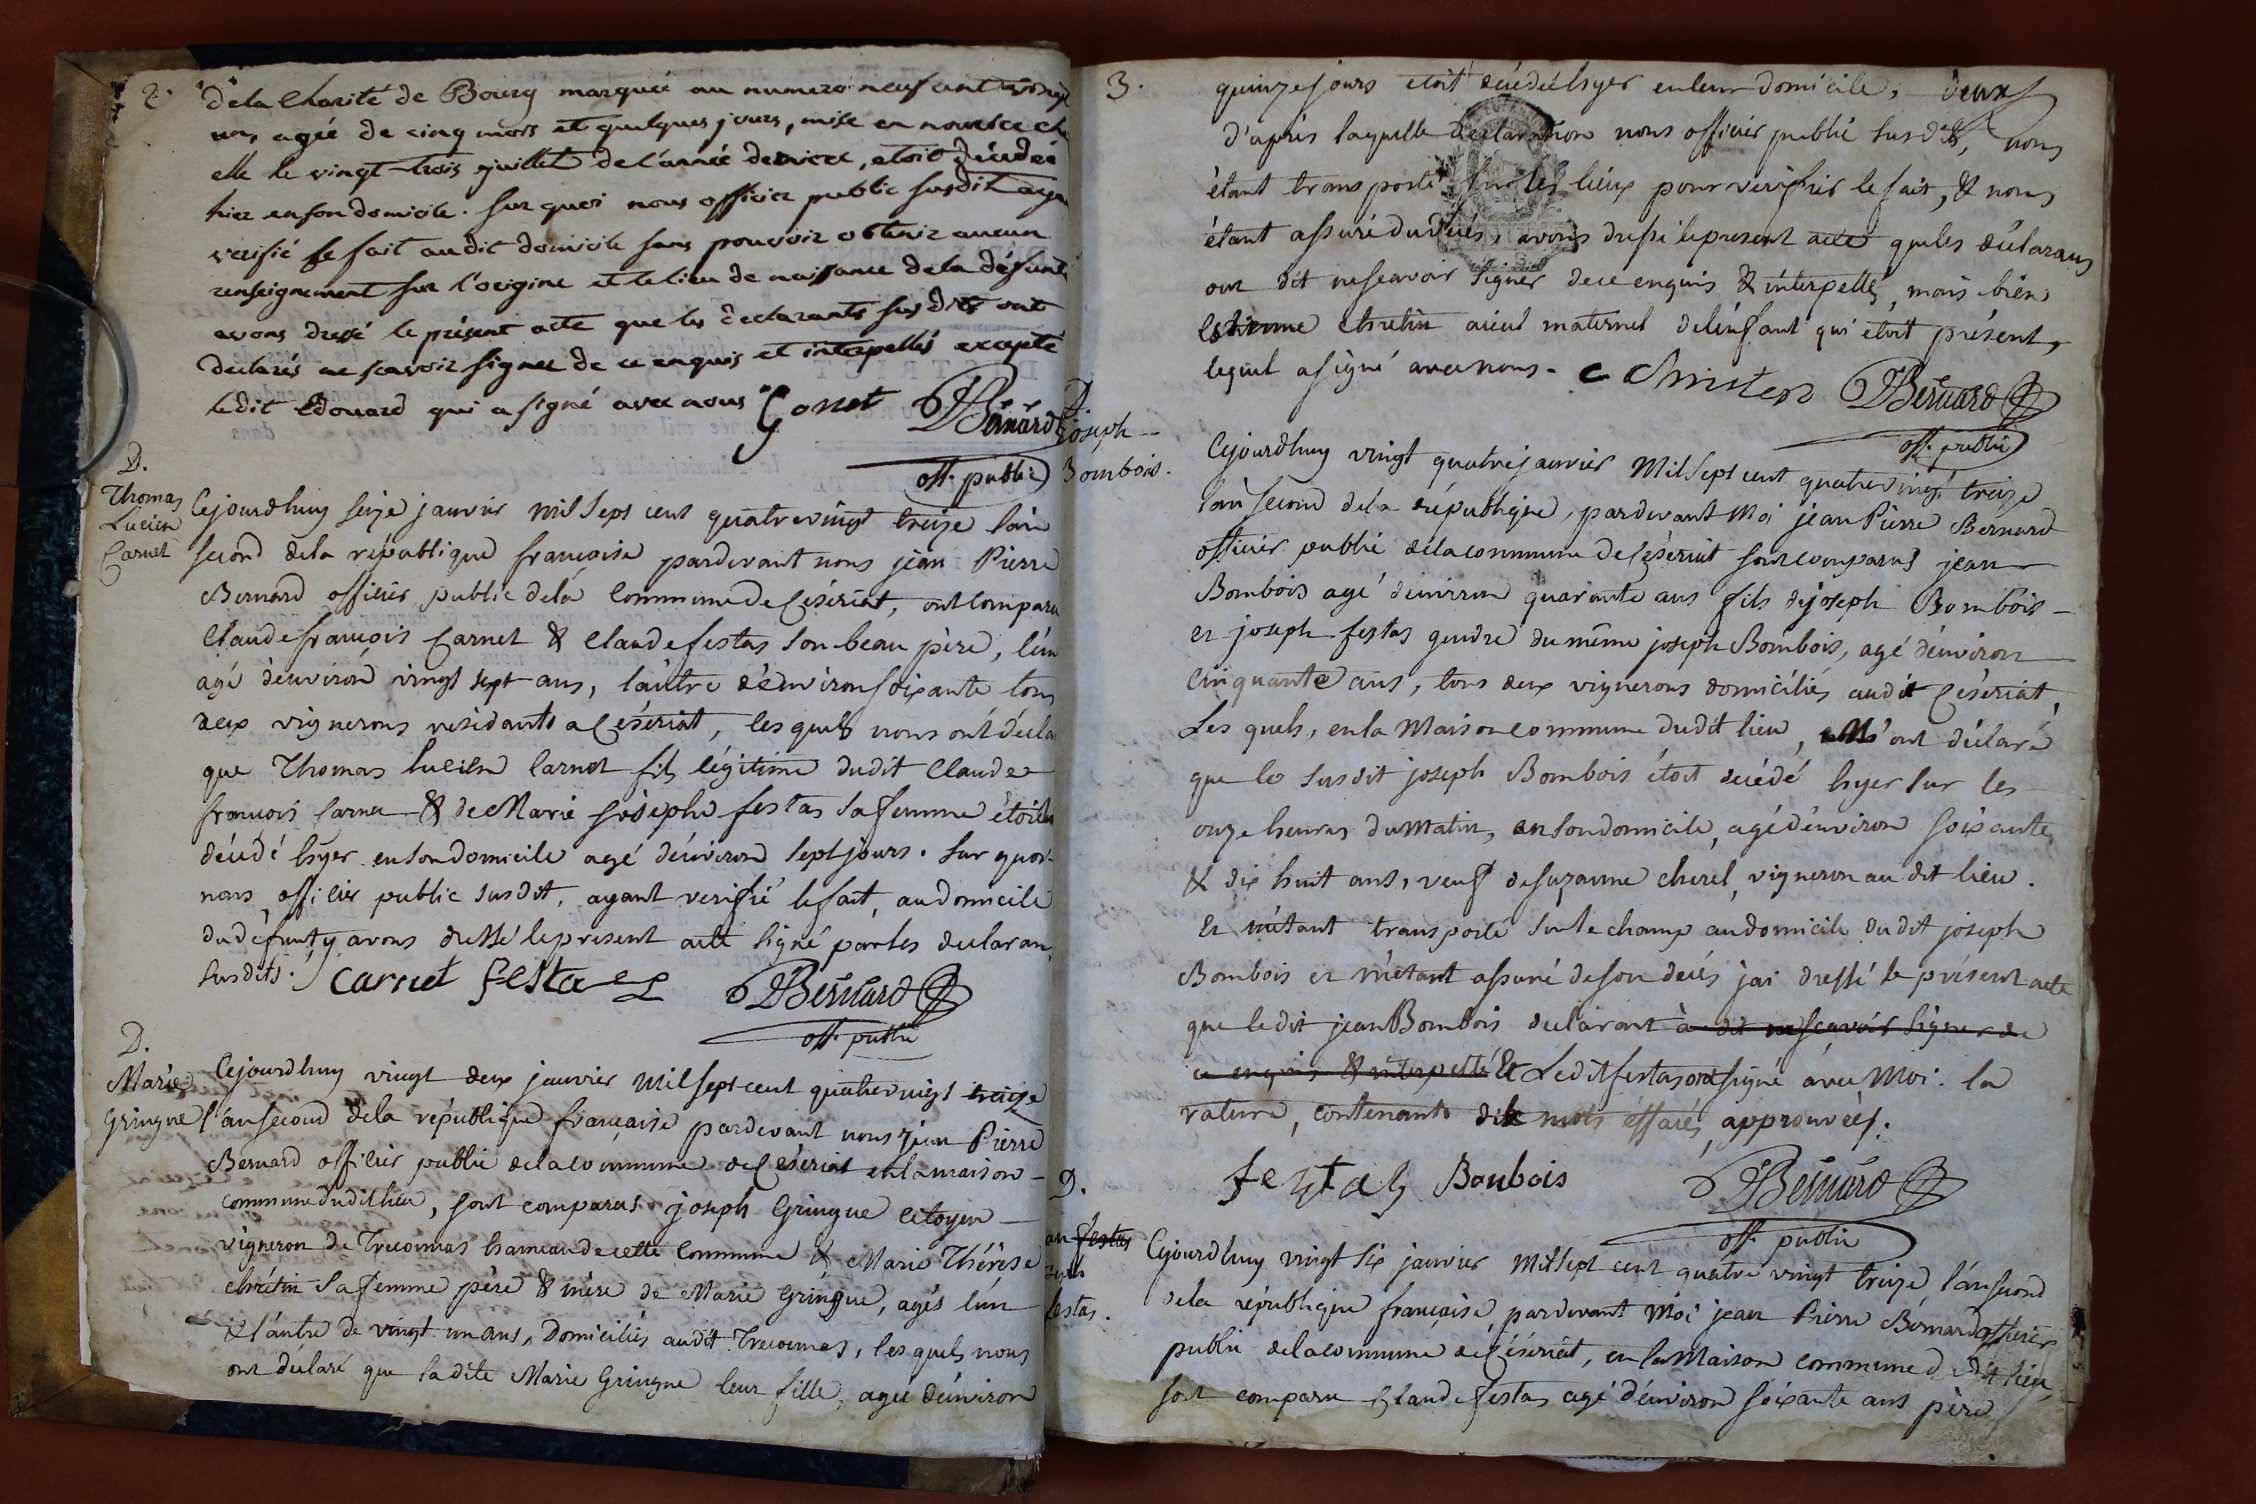 2.
de la Charité de Bourg marquée au numero neuf cent vingt
un, agée de cinq mois et quelques jours, mise en nourice ch
elle le vingt-trois juillet de l'année derniere, etoit décedée
hier en son domicile. sur quoi nous officier public susdit aya
verifié le fait audit domicile sans pouvoir obtenir aucun
renseignement sur l'origine et le lieu de naissance de la défunte
avons dressé le présent acte que les declarants susdits ont
declarés ne scavoir signer de ce enquis et interpellés excepté
ledit Edouard qui a signé avec nous Gonet Bernard
off. public
D.
Thomas
Lucien
Carnet
Cejourdhuy seize janvier mil sept cent quatre vingt treize l'an
second de la république française pardevant nous jean Pierre
Bernard officier public de la Commune de Ceseriat, ont comparu
Claude françois Carnet & Claude festas son beau père, l'un
agé d'environ vingt sept ans, l'autre d'environ soixante tous
deux vignerons residants a Céseriat, lesquels nous ont décla
que Thomas Lucien Carnet fils légitime dudit Claude
françois Carnet & de Marie josephe festas sa femme étoit
décédé hyer en son domicile agé d'environ sept jours. sur quoi
nous officier public susdit, ayant verifié le fait, au domicile
du défunt, y avons dressé le present acte signé par les declaran
susdits. Carnet festas Bernard
off. public
D.
Marie
Gringue
Cejourdhuy vingt deux janvier mil sept cent quatre vingt treize
l'an second de la république française pardevant nous jean Pierre
Bernard officier public de la commune de Céseriat en la maison
commune dudit lieu, sont comparus joseph Gringue citoyen
vigneron de Treconnas hameau de cette Commune & Marie Thérèse
chrétin sa femme père & mère de Marie Gringue, agés l'un
& l'autre de vingt un ans, Domiciliés audit Treconnas, lesquels nous
ont déclaré que ladite Marie Gringue leur fille, agée d'environ
3.
quinze jours etoit décédé hyer en leur domicile, deux
d'après laquelle declaration nous officier public susdit, nous
étant transporté sur les lieux pour verifier le fait, & nous
étant assuré du décés, avons dressé le present acte que les déclarans
ont dit ne scavoir signer de ce enquis & interpellés, mais bien
Estienne chretin aieul maternel de l'enfant qui étoit présent,
lequel a signé avec nous. Bernard
off. public
D.
joseph
Bombois.
Cejourdhuy vingt quatre janvier Mil Sept cent quatre vingt treize
l'an second de la république, pardevant Moi jean Pierre Bernard
officier public de la commune de Céseriat sont comparus jean
Bombois agé d'environ quarante ans fils de joseph Bombois
et joseph festas gendre du même joseph Bombois, agé d'environ
cinquante ans, tous deux vignerons domiciliés audit Céseriat,
Lesquels, en la Maison commune dudit lieu, m'ont déclaré
que le susdit joseph Bombois étoit décédé hyer sur les
onze heures du matin, en son domicile, agé d'environ soixante
& dix huit ans, veuf de suzanne cherel, vigneron au dit lieu.
Et m'étant transporté sur le champ au domicile dudit joseph
Bombois et m'étant assuré de son décés j'ai dressé le présent acte
que ledit jean Bombois declarant à dit ne sçavoir signer de
ce enquis & interpellé Et Ledit festas ont signé avec Moi. la
rature, contenant dix mots éffacés, approuvées.
festas Bonbois Bernard
off. public
D.
festas
festas.
Cejourdhuy vingt six janvier Mil sept cent quatre vingt treize, l'an second
de la république française, pardevant Moi jean Pierre Bernard officier
public de la commune de Céseriat, en la Maison commune dudit lieu
sont comparu Claude festas agé d'environ soixante ans père